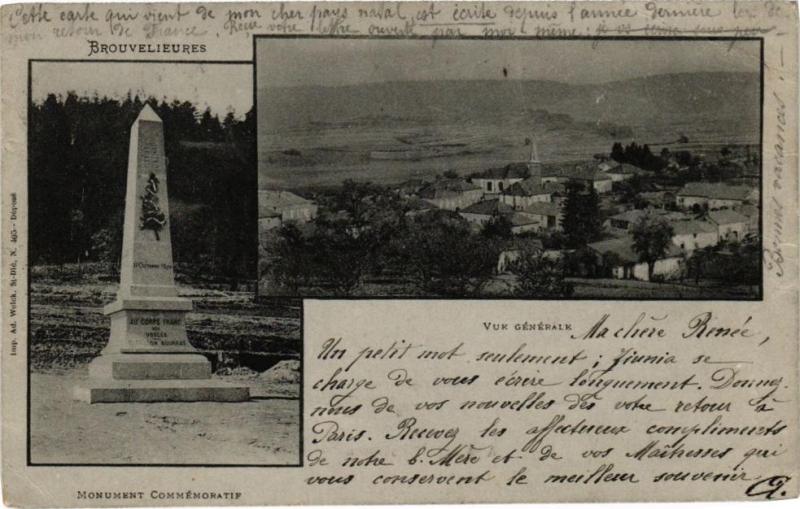 Cette carte qui vient de mon cher pays natal, est écrite depuis l'année dernière
mon retour de France. Reçu votre lettre ouverte par moi même :
BROUVELIEURES
Imp. Ad. Weick, St-Dié, N. 495 - Déposé
11 OCTOBRE 1870
AU CORPS FRANC
DES
VOSGES
Bonnes vacances!
VUE GÉNÉRALE
Ma chère Renée,
Un petit mot seulement ; Junia se
charge de vous écrire longuement. Donnez-
nous de vos nouvelles dès votre retour à
Paris. Recevez les affectueux compliments
de notre b. Mère et de vos Maîtresses qui
vous conservent le meilleur souvenir.
MONUMENT COMMÉMORATIF